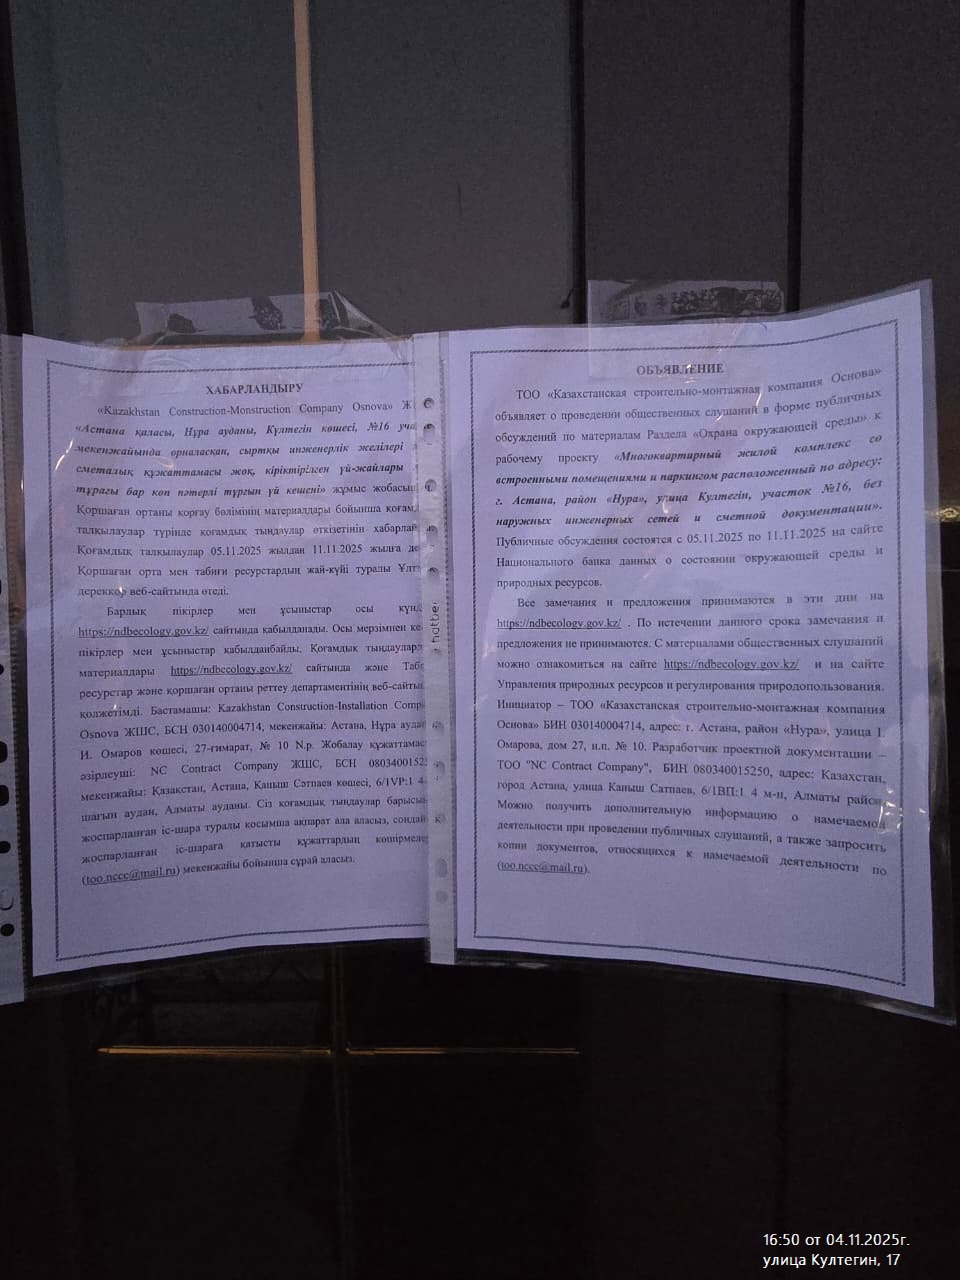 ХАБАРЛАНДЫРУ
«Kazakhstan Construction-Monstruction Company Osnova» Ж
«Астана қаласы, Нұра ауданы, Күлтегін көшесі, №16 уча
мекенжайында орналасқан, сыртқы инженерлік желілері
сметалық құжаттамасы жоқ, кіріктірілген үй-жайлары
тұрағы бар көп пәтерлі тұрғын үй кешені» жұмыс жобасы
Қоршаған ортаны қорғау бөлімінің материалдары бойынша қоғам
талқылаулар түрінде қоғамдық тыңдаулар өткізетінін хабарлай
Қоғамдық талқылаулар 05.11.2025 жылдан 11.11.2025 жылға де
Қоршаған орта мен табиғи ресурстардың жай-күйі туралы Ұлт
дереккор веб-сайтында өтеді.
Барлық пікірлер мен ұсыныстар осы күнд
https://ndbecology.gov.kz/ сайтында қабылданады. Осы мерзімнен ке
пікірлер мен ұсыныстар қабылданбайды. Қоғамдық тыңдаулард
материалдары https://ndbecology.gov.kz/ сайтында және Таби
ресурстар және қоршаған ортаны реттеу департаментінің веб-сайты
қолжетімді. Бастамашы: Kazakhstan Construction-Installation Comp
Osnova ЖШС, БСН 030140004714, мекенжайы: Астана, Нұра аудан
И. Омаров көшесі, 27-ғимарат, № 10 N.p. Жобалау құжаттамас
әзірлеуші: NC Contract Company ЖШС, БСН 0803400152
мекенжайы: Қазақстан, Астана, Қаныш Сәтпаев көшесі, 6/1VP:1 4-
шағын аудан, Алматы ауданы. Сіз қоғамдық тыңдаулар барысын
жоспарланған іс-шара туралы қосымша ақпарат ала аласыз, сондай
жоспарланған іс-шараға қатысты құжаттардың көшірмеле
(too.nccc@mail.ru) мекенжайы бойынша сұрай аласыз.
ОБЪЯВЛЕНИЕ
ТОО «Казахстанская строительно-монтажная компания Основа»
объявляет о проведении общественных слушаний в форме публичных
обсуждений по материалам Раздела «Охрана окружающей среды» к
рабочему проекту «Многоквартирный жилой комплекс со
встроенными помещениями и паркингом расположенный по адресу:
г. Астана, район «Нура», улица Култегин, участок №16, без
наружных инженерных сетей и сметной документации».
Публичные обсуждения состоятся с 05.11.2025 по 11.11.2025 на сайте
Национального банка данных о состоянии окружающей среды и
природных ресурсов.
Все замечания и предложения принимаются в эти дни на
https://ndbecology.gov.kz/ . По истечении данного срока замечания и
предложения не принимаются. С материалами общественных слушаний
можно ознакомиться на сайте https://ndbecology.gov.kz/ и на сайте
Управления природных ресурсов и регулирования природопользования.
Инициатор – ТОО «Казахстанская строительно-монтажная компания
Основа» БИН 030140004714, адрес: г. Астана, район «Нура», улица І.
Омарова, дом 27, н.п. № 10. Разработчик проектной документации –
ТОО "NC Contract Company", БИН 080340015250, адрес: Казахстан,
город Астана, улица Каныш Сатпаев, 6/1ВП:1 4 м-н, Алматы район.
Можно получить дополнительную информацию о намечаемой
деятельности при проведении публичных слушаний, а также запросить
копии документов, относящихся к намечаемой деятельности по
(too.nccc@mail.ru).
16:50 от 04.11.2025г.
улица Култегин, 17